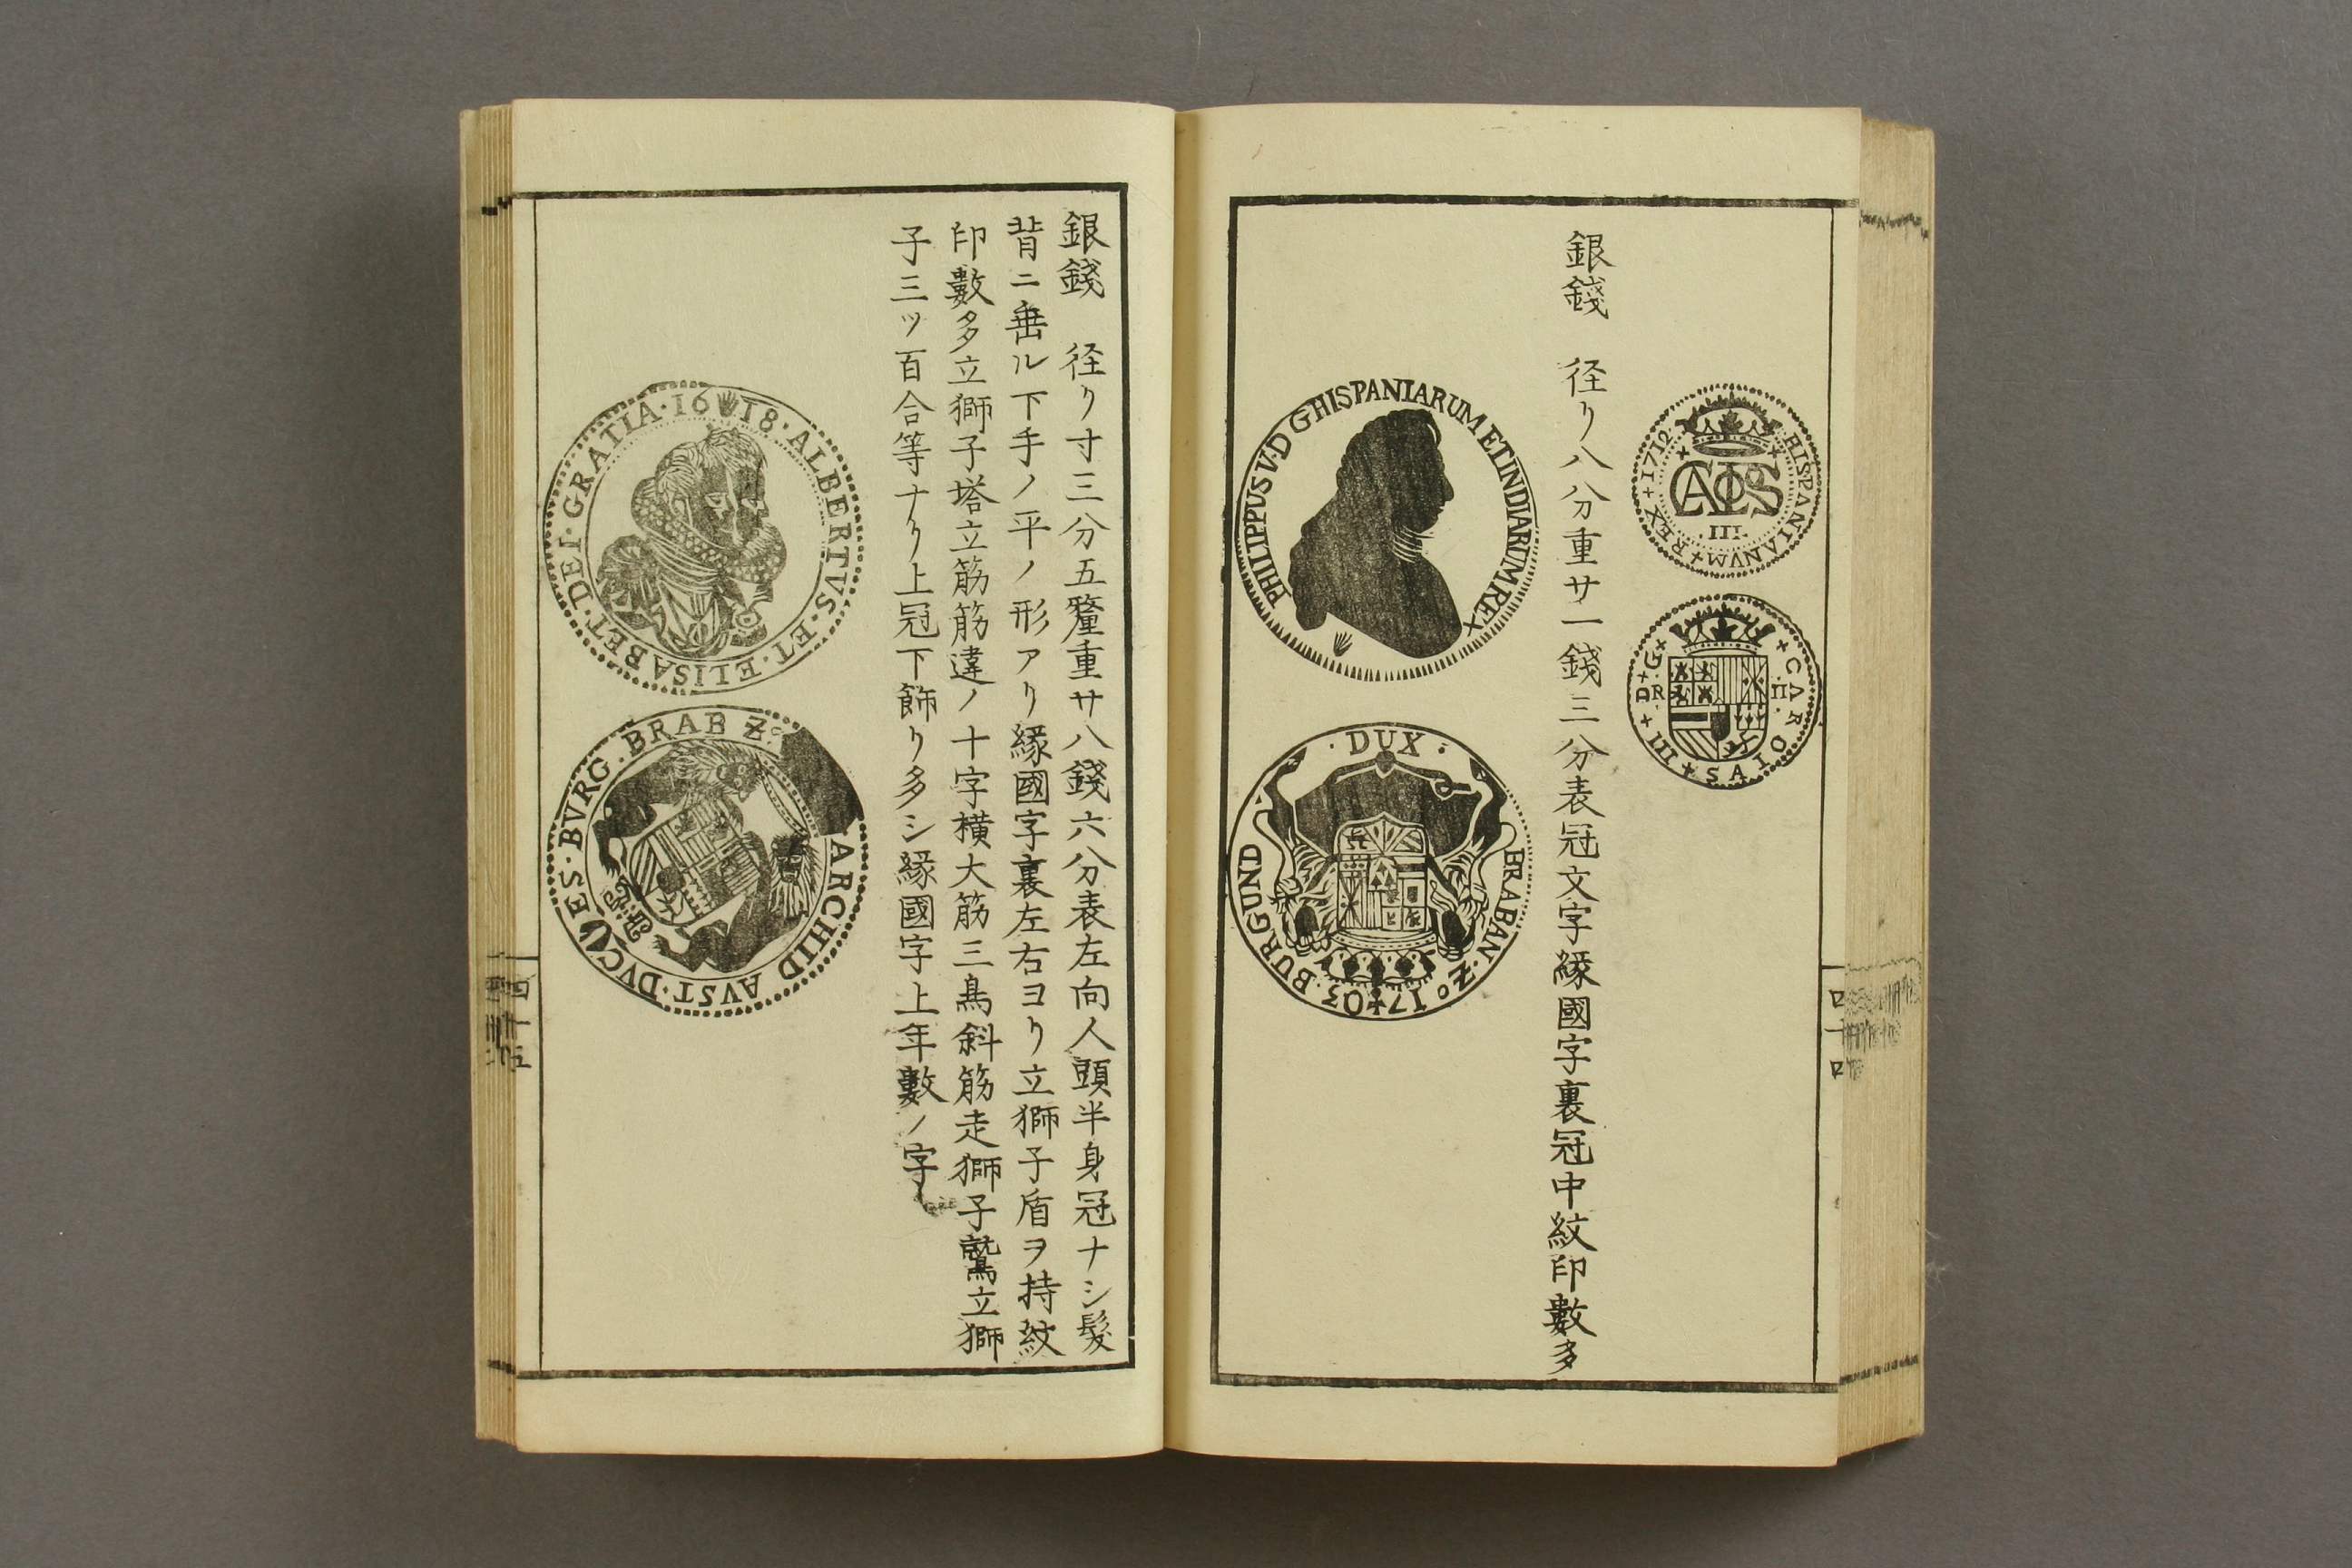 HISPANIANVM+REX+1712
CAROLS
III
CAROLAS+III+D+G+
R II
銀錢 径リ八分重サ一錢三分表冠文字縁國字裏冠中紋印數多
PHILIPPUS V·D GHISPANIARUM ET INDIARUM REX
·DUX· BRABAN·Z° 17 03·BURGUND
四十四
銀錢 径リ寸三分五釐重サ八錢六分表左向人頭半身冠ナシ髪
背ニ垂ル下手ノ平ノ形アリ縁國字裏左右ヨリ立獅子盾ヲ持紋
印數多立獅子塔立筋筋違ノ十字横大筋三鳥斜筋走獅子鷲立獅
子三ツ百合等ナリ上冠下飾リ多シ縁國字上年數ノ字
16 18·ALBERTVS·ET·ELISABET·DEI·GRATIA·
·ARCHID AVST·DVC ES·BVRG·BRAB Z°
四十五